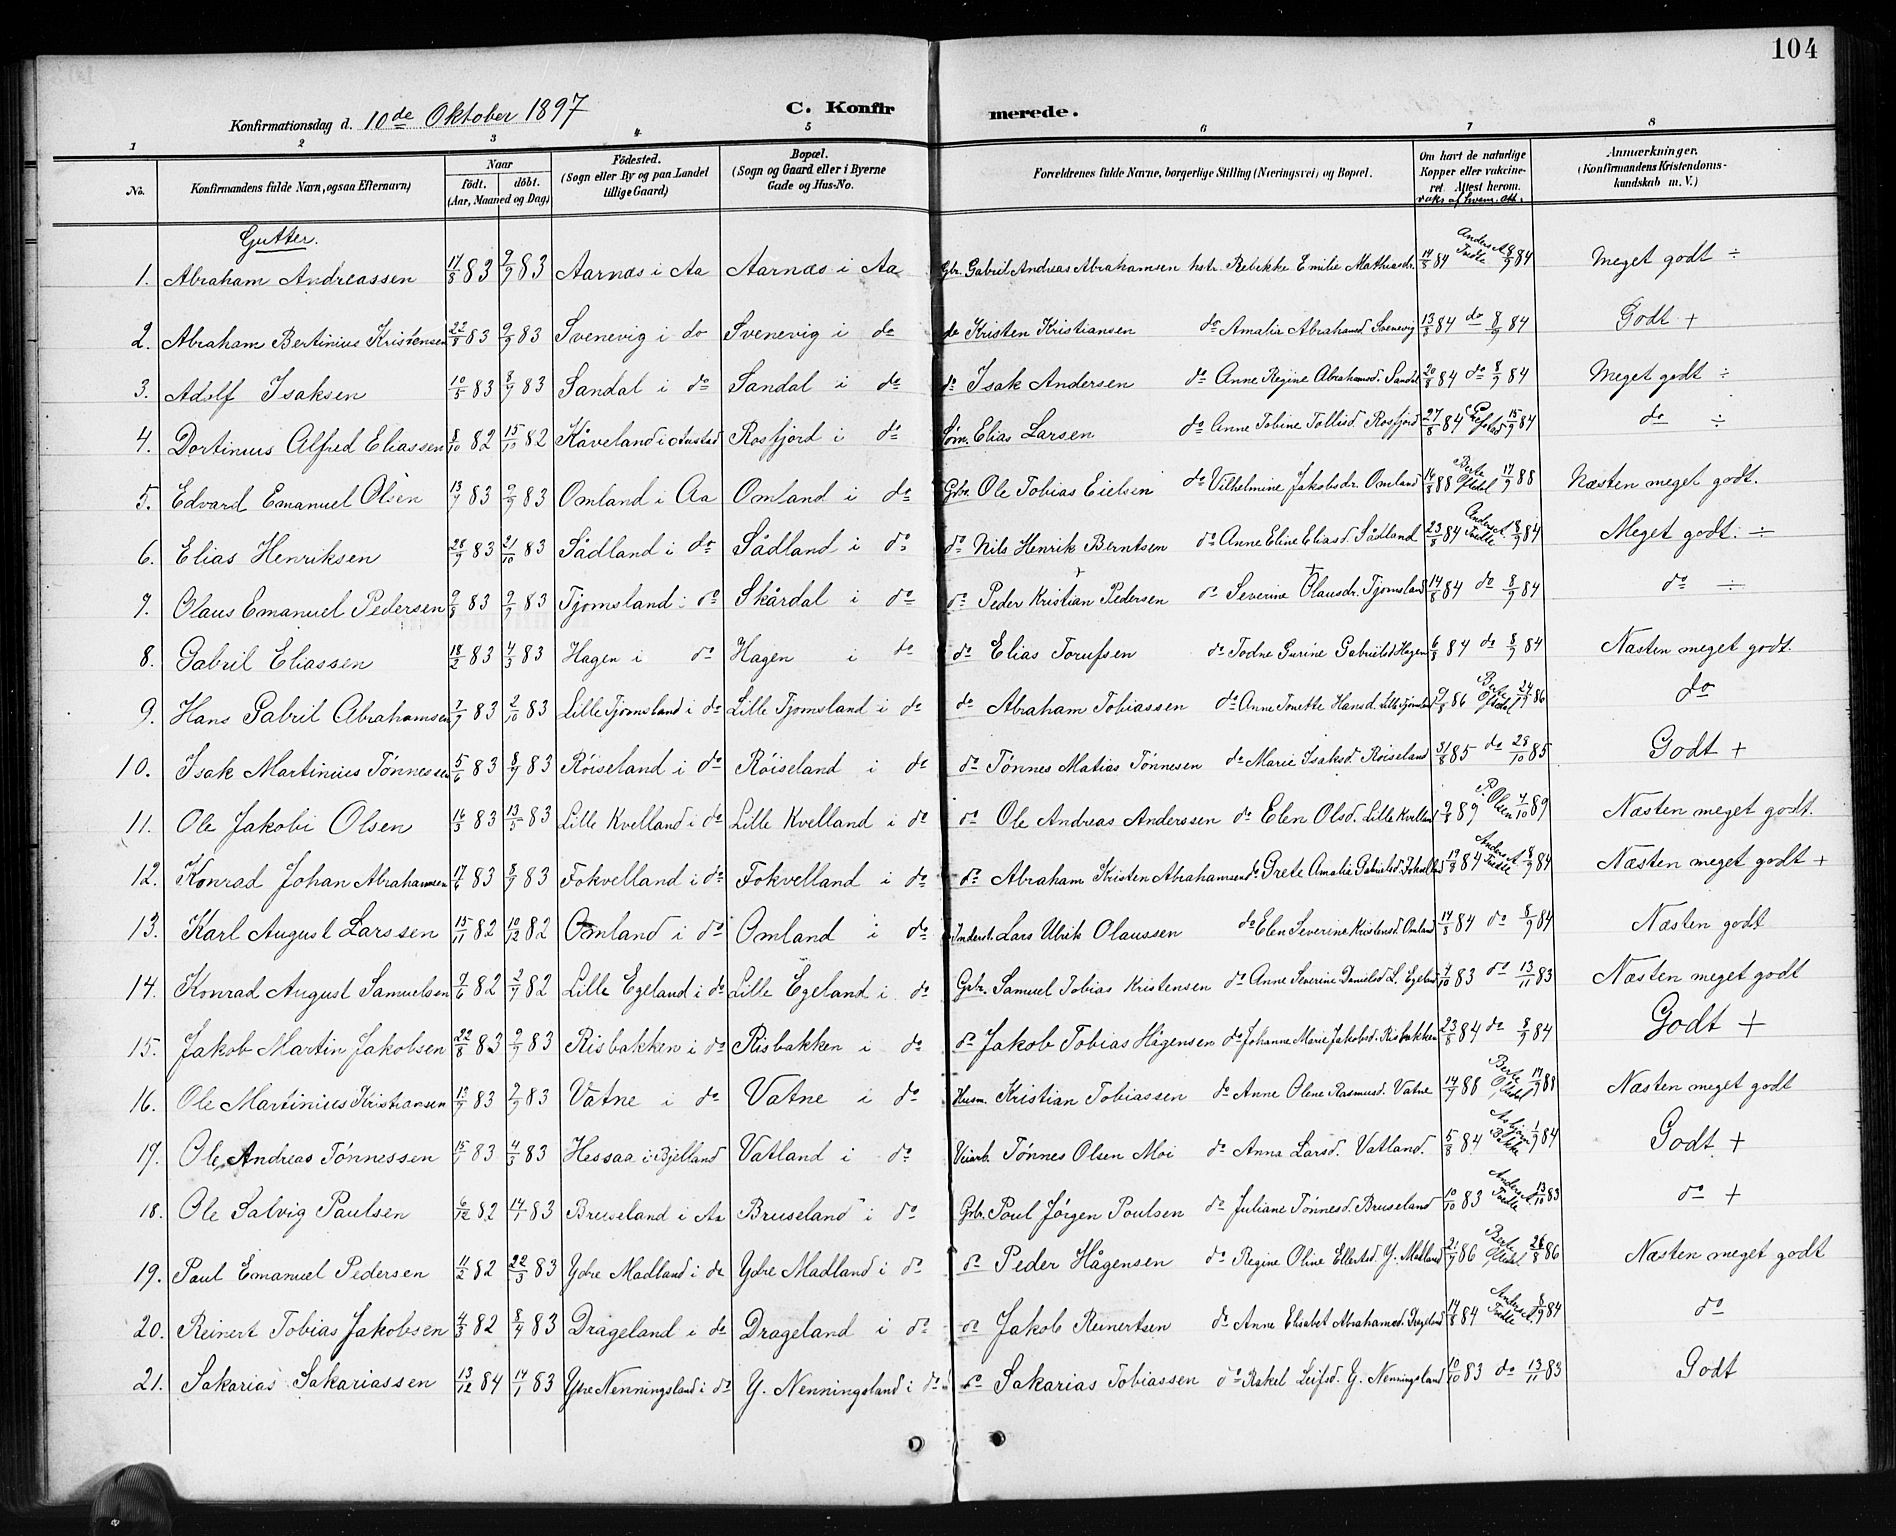 104
Konfirmationsdag d. 10de Oktober 1897 C. Konfir merede.
1 2 3 4 5 6 7 8
No. Konfirmandens fulde Navn, ogsaa Efternavn) Naar födt. döbt. (Aar, Maaned og Dag) Födested. (Sogn eller By og paa Landet tillige Gaard) Bopæl. (Sogn og Gaard eller i Byerne Gade og Hus-No. Forældrenes fulde Navne, borgerlige Stilling (Næringsvei) og Bopæl. Om havt de naturlige Kopper eller vakcineret. Attest herom. vaks. af hvem. Att. Anmærkninger. (Konfirmandens Kristendomskundskab m. V.)
Gutter.
1. Abraham Andreassen 17/8 83 9/9 83 Aarnæs i Aa Aarnæs i Aa Gbr. Gabriel Andreas Abrahamsen hstr. Rebekke Emilie Mathiasdr. 14/8 84 Anders A Tredte 8/9 84 Meget godt ÷
2. Abraham Bertinius Kristensen 22/8 83 9/9 83 Svenevig i do Svenevig i do do Kristen Kristiansen do Amalia Abrahamsd Svenevig 13/8 84 do 8/9 84 Godt +
3. Adolf Isaksen 10/5 83 8/7 83 Sandal i do Sandal i do do Isak Andersen do Anne Regine Abrahamsd. Sandal 20/8 84 do 8/9 84 Meget godt ÷
4. Dortinius Alfred Eliassen 8/10 82 15/10 82 Kåveland i Austad Rosfjord i do Söm. Elias Larsen do Anne Tobine Tollisd. Rosfjord 27/8 84 15/9 84 do ÷
5. Edvard Emanuel Olsen 13/7 83 9/9 83 Omland i Aa Omland i do Gbr. Ole Tobias Eielsen do Vilhelmine Jakobsdr. Omland 16/8 88 Berte 17/9 88 Næsten meget godt.
6. Elias Henriksen 28/9 83 21/10 83 Sådland i do Sådland i do do Nils Henrik Berntsen do Anne Eline Eliasd. Sådland 23/8 84 Anders A Tredte 8/9 84 Meget godt. ÷
7. Olaus Emanuel Pedersen 9/8 83 9/9 83 Tjomsland i do Skårdal i do do Peder Kristian Pedersen do Severine Olausdr. Tjomsland 14/8 84 do 8/9 84 do ÷
8. Gabril Eliassen 18/2 83 4/3 83 Hagen i do Hagen i do do Elias Torufsen do Todne Gurine Gabrielsd Hagen 6/8 84 do 8/9 84 Næsten meget godt.
9. Hans Gabril Abrahamsen 7/9 83 2/10 83 Lille Tjomsland i do Lille Tjomsland i do do Abraham Tobiassen do Anne Tonette Hansd. Lille Tjomsland 9/8 86 Berte 24/9 86 do
10. Isak Martinius Tønnessen 5/6 83 8/7 83 Röiseland i do Röiseland i do do Tønnes Matias Tønnesen do Marie Isaksd. Röiseland 31/8 85 do 28/10 85 Godt +
11. Ole Jakobi Olsen 16/3 83 13/5 83 Lille Kvelland i do Lille Kvelland i do do Ole Andreas Anderssen do Elen Olsd. Lille Kvelland 9/8 89 P. Olsen 4/10 89 Næsten meget godt.
12. Konrad Johan Abrahamsen 17/6 83 8/7 83 Fokvelland i do Fokvelland i do do Abraham Kristen Abrahamsen do Grete Amalia Gabrielsd. Fokvelland 19/8 84 Anders A Tredte 8/9 84 Næsten meget godt +
13. Karl August Larssen 15/11 82 10/12 82 Omland i do Omland i do Inderst. Lars Ulrik Olaussen do Elen Severine Kristensd. Omland 14/8 84 do 8/9 84 Næsten godt
14. Konrad August Samuelsen 9/6 82 2/7 82 Lille Egeland i do Lille Egeland i do Gbr. Samuel Tobias Kristensen do Anne Severine Danielsd L. Egeland 4/10 83 do 13/11 83 Næsten meget godt
15. Jakob Martin Jakobsen 22/8 83 9/9 83 Risbakken i do Risbakken i do do Jakob Tobias Hågensen do Johanne Marie Jakobsd. Risbakken 23/8 84 do 8/9 84 Godt +
16. Ole Martinius Kristiansen 12/7 83 9/9 83 Vatne i do Vatne i do Husm. Kristian Tobiassen do Anne Olene Rasmusd. Vatne 14/9 88 Berte 17/9 88 Næsten meget godt
17. Ole Andreas Tønnessen 15/7 83 4/3 83 Hessaa i Bjelland Vatland i do Veiarb. Tønnes Olsen Moi do Anna Larsd. Vatland. 5/8 84 Asbjørn Bakke 1/9 84 Godt +
18. Ole Salvig Paulsen 6/12 82 14/1 83 Bruseland i Aa Bruseland i do Gbr. Poul Jørgen Poulsen do Juliane Tønnesd. Bruseland 10/10 83 Anders A. Tredte 13/10 83 do +
19. Paul Emanuel Pedersen 11/2 82 22/3 83 Ydre Madland i do Ydre Madland i do do Peder Hågensen do Regine Oline Ellertsd. Y. Madland 21/9 86 Berte 26/8 86 Næsten meget godt
20. Reinert Tobias Jakobsen 4/3 82 8/4 83 Drageland i do Drageland i do do Jakob Reinertsen do Anne Elisabet Abrahamsd. Drageland 14/8 84 Anders A. Tredte 8/9 84 do
21. Sakarias Sakariassen 13/12 84 14/1 83 Ytre Nenningsland i do Y. Nenningsland i do do Sakarias Tobiassen do Rakel Leifsd. Y. Nenningsland 10/10 83 do 13/11 83 Godt